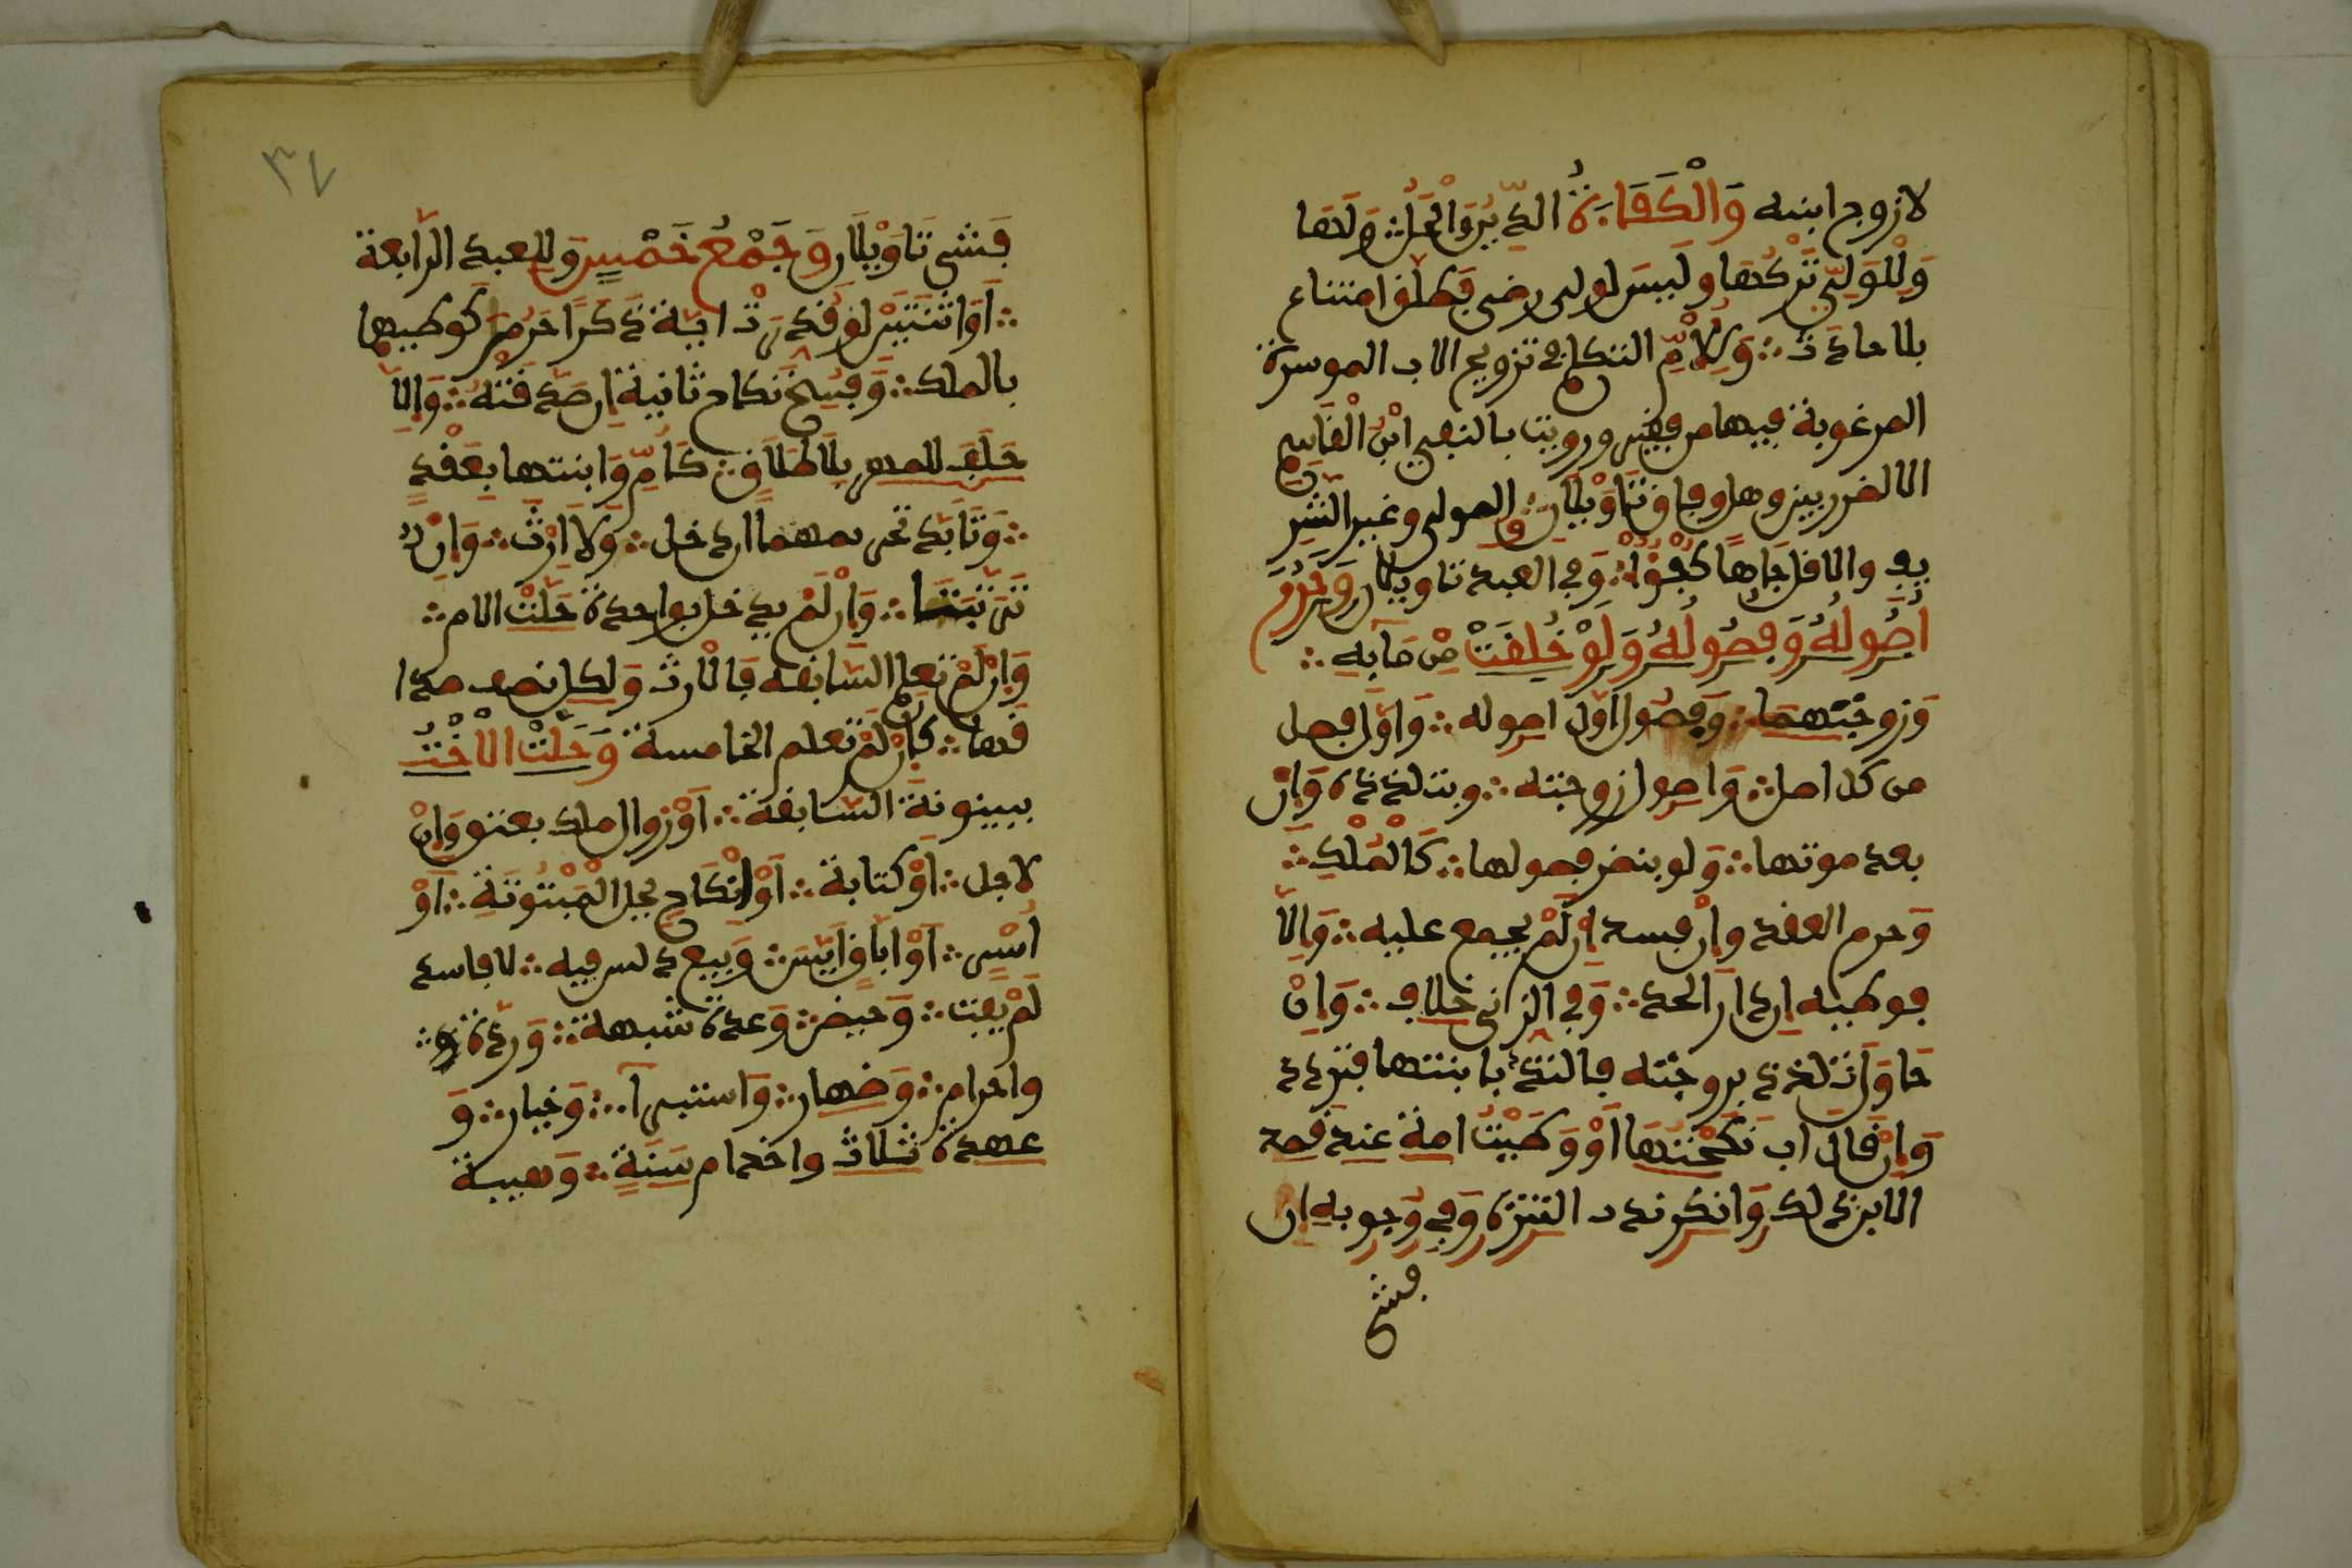 لا زوج ابنه وَالْكَفَاءَةُ الدِّينُ وَالْحَالُ وَلَهَا
وَلِلْوَلِيِّ تَرْكُهَا وليس لولي رضي فطلق امتناع
بلا حادث وَلِلْأُمِّ التكلم في تزويج الاب الموسرة
المرغوبة فيها من فقير ورويت بالنفي ابْنُ الْقَاسِمِ
الا لضرر بين وهل وفاق تَاوِيلَانِ والمولى وغير الشريف
والاقل جاها كُفْؤٌ وَفي العبد تاويلان وَحَرُمَ
أُصُولُهُ وَفُصُولُهُ وَلَوْ خُلِقَتْ مِن مَائِهِ
وَزوجَتُهما وَفصُولُ اول اصوله وَاوَّل فصل
من كل اصل وَاصول زوجته وبتلذذه وَإِن
بعد موتها وَلو بنظر فصولها كَالْمِلْكِ
وَحرم العقد وإن فسد إن لَمْ يجمع عليه وَإِلَّا
فوطيه إن درا الحد وَفي الزنى خلاف وَإِنْ
حاول تلذذ بزوجته فالتذ بابنتها فتردد
وَإِن قال اب نكحتها أَوْ وَطِيتُ امة عند قصد
الابن ذلك وَانكر ندب التنزه وَفي وجوبه إن
فشى
٣٧
فَشى تَاوِيلَان وَجَمْعُ خَمْسٍ وَللعبد الرابعة
أَو اثنتين لو قدرت اية ذَكَرًا حَرُمَ كوطيهما
بالملك وَفسخ نكاح ثانية إن صَدَّقَتْهُ وَإِلَّا
حَلَف للمهر بِلَا طَلَاقٍ كَأُمٍّ وَابنتها بِعَقْدٍ
وَتَابد تحريمهما ان دخل وَلَا إِرْثَ وَإِنْ
تَرَتَّبَتَا وَإِن لَمْ يدخل بواحدة حَلَّتْ الام
وَإِن لَمْ تعلم السَّابقة فَالارث وَلكل نصف صدا
قها كَإِن لَمْ تعلم الخامسة وَحَلَّتْ الْأُخْتُ
ببينونة السَّابقة أَوْ زوال ملك بعتق وَإِنْ
لاجل أَوْ كتابة أَوْ إنْكَاحٍ يحل الْمَبْتُوتَةِ أَوْ
أَسْرٍ أَوْ ابَاقِ إِيَاسٍ وَبيع دلس فيه لا فاسد
لَمْ يفت وَحيض وَعدة شبهة وَردة
واحرام وَظهار وَاستبراء وَخيار وَ
عهدة ثلاث واخدام سَنَةٍ وَهبة